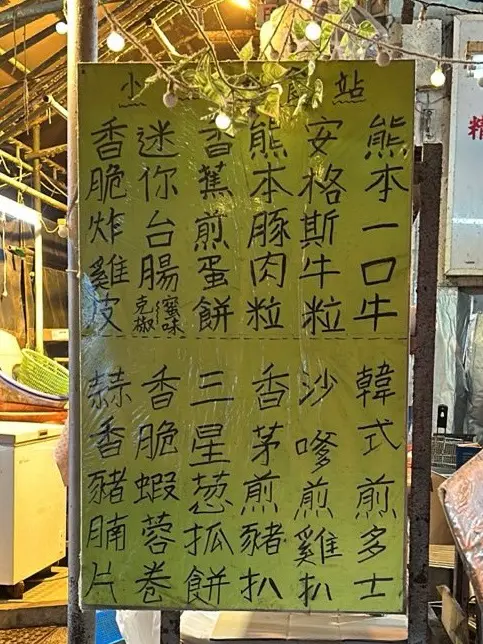 小 食站
熊本一口牛
安格斯牛粒
熊本豚肉粒
香蕉煎蛋餅
迷你台腸
蜜味
克椒
香脆炸雞皮
韓式煎多士
沙嗲煎雞扒
香茅煎豬扒
三星葱抓餅
香脆蝦蓉卷
蒜香豬腩片
精